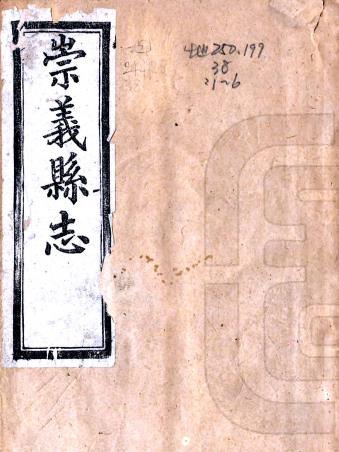 崇義縣志
地250.199
38
:1~6